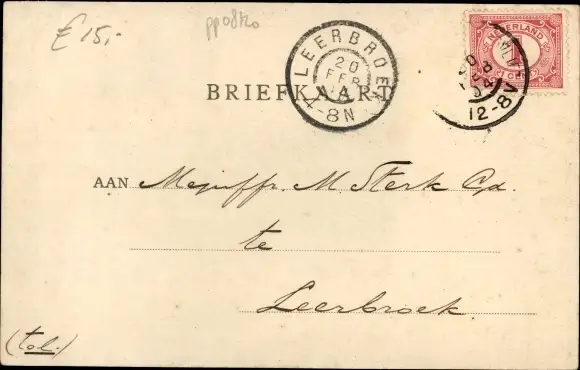 € 15,-
pp0820
NEDERLAND
1
CENT
LEERBROEK
20
FEB
7-8N
12-8V
BRIEFKAART
AAN Mejuffr. M Sterk Cz.
te
Leerbroek.
(tol.)